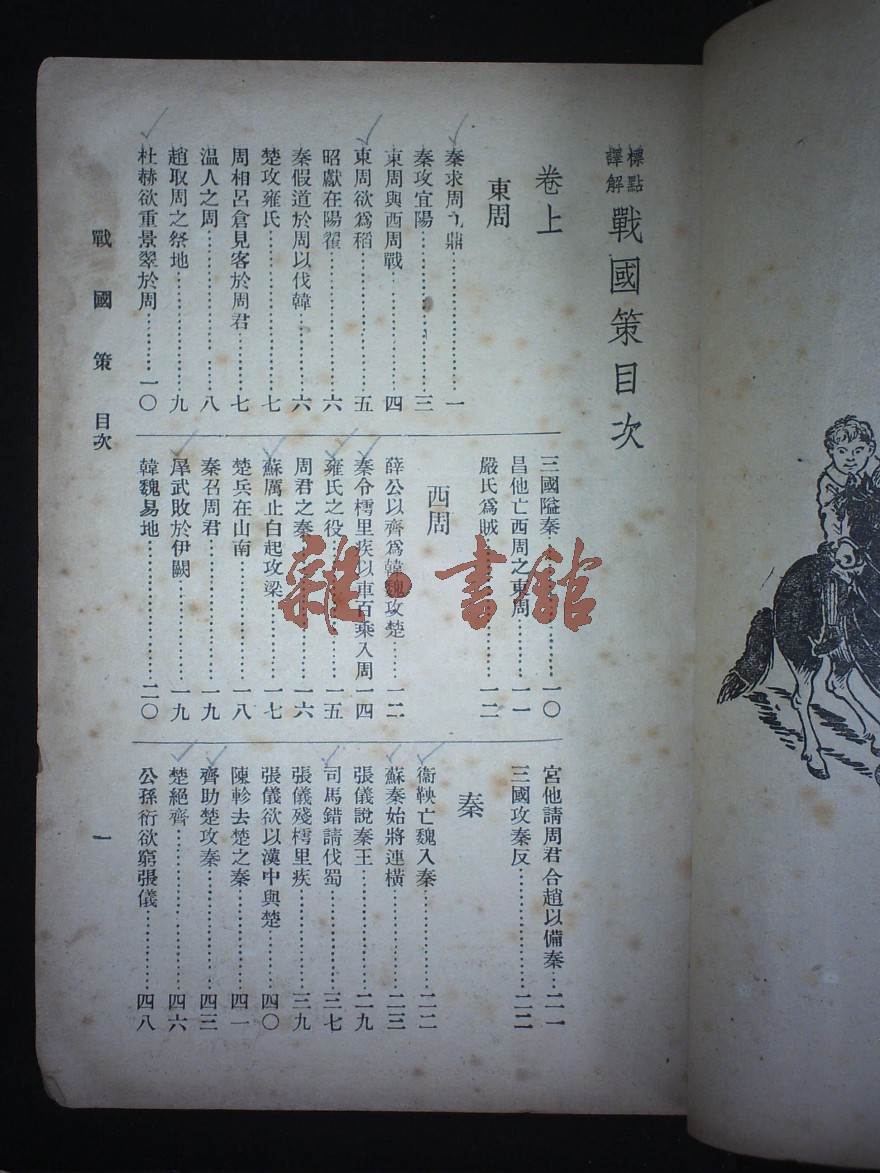 標點
譯解
戰國策目次
卷上
東周
秦求周九鼎……一
秦攻宜陽……三
東周與西周戰……四
東周欲爲稻……五
昭獻在陽翟……六
秦假道於周以伐韓……六
楚攻雍氏……七
周相呂倉見客於周君……七
温人之周……八
趙取周之祭地……九
杜赫欲重景翠於周……一〇
三國隘秦……一〇
昌他亡西周之東周……一一
嚴氏爲賊……一二
西周
薛公以齊爲韓魏攻楚……一二
秦令樗里疾以車百乘入周一四
雍氏之役……一五
周君之秦……一六
蘇厲止白起攻梁……一七
楚兵在山南……一八
秦召周君……一九
犀武敗於伊闕……一九
韓魏易地……二〇
宮他請周君合趙以備秦……二一
三國攻秦反……二二
秦
衞鞅亡魏入秦……二二
蘇秦始將連橫……二三
張儀說秦王……二九
司馬錯請伐蜀……三七
張儀殘樗里疾……三九
張儀欲以漢中與楚……四〇
陳軫去楚之秦……四一
齊助楚攻秦……四三
楚絕齊……四六
公孫衍欲窮張儀……四八
戰國策 目次
一
雜·書館